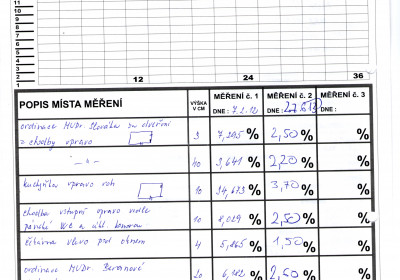 11
10
9
8
7
6
5
4
3
2
1
12 24 36
POPIS MÍSTA MĚŘENÍ
VÝŠKA V CM
MĚŘENÍ č. 1
DNE: 7.2.12
MĚŘENÍ č. 2
DNE:
MĚŘENÍ č. 3
DNE:
ordinace MUDr.
z chodby vpravo
3 7,395 % 2,50 % %
— „ — 40 3,641 % 2,20 % %
kuchyňka vpravo roh
10 14,673 % 3,70 % %
chodba vstupní vpravo vedle
pánské WC
10 4,029 % 2,50 % %
čekárna vlevo pod oknem 4 5,865 % 1,50 % %
ordinace MUDr.
20 6,182 % 2,60 % %